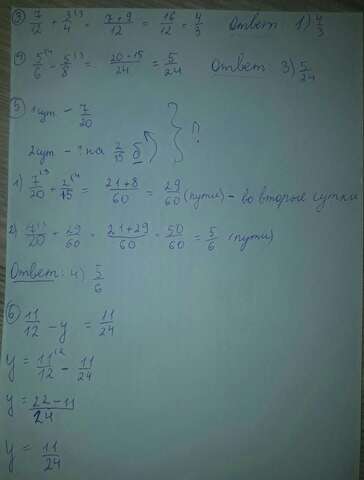 ③ 7/12 + 3/4 = (7+9)/12 = 16/12 = 4/3 Ответ: 1) 4/3
④ 5/6 - 5/8 = (20-15)/24 = 5/24 Ответ: 3) 5/24
⑤ 1 сут - 7/20
2 сут - ? на 2/15 б } ?
1) 7/20 + 2/15 = (21+8)/60 = 29/60 (пути) - во вторые сутки
2) 7/20 + 29/60 = (21+29)/60 = 50/60 = 5/6 (пути)
Ответ: 4) 5/6
⑥ 11/12 - y = 11/24
y = 11/12 - 11/24
y = (22-11)/24
y = 11/24